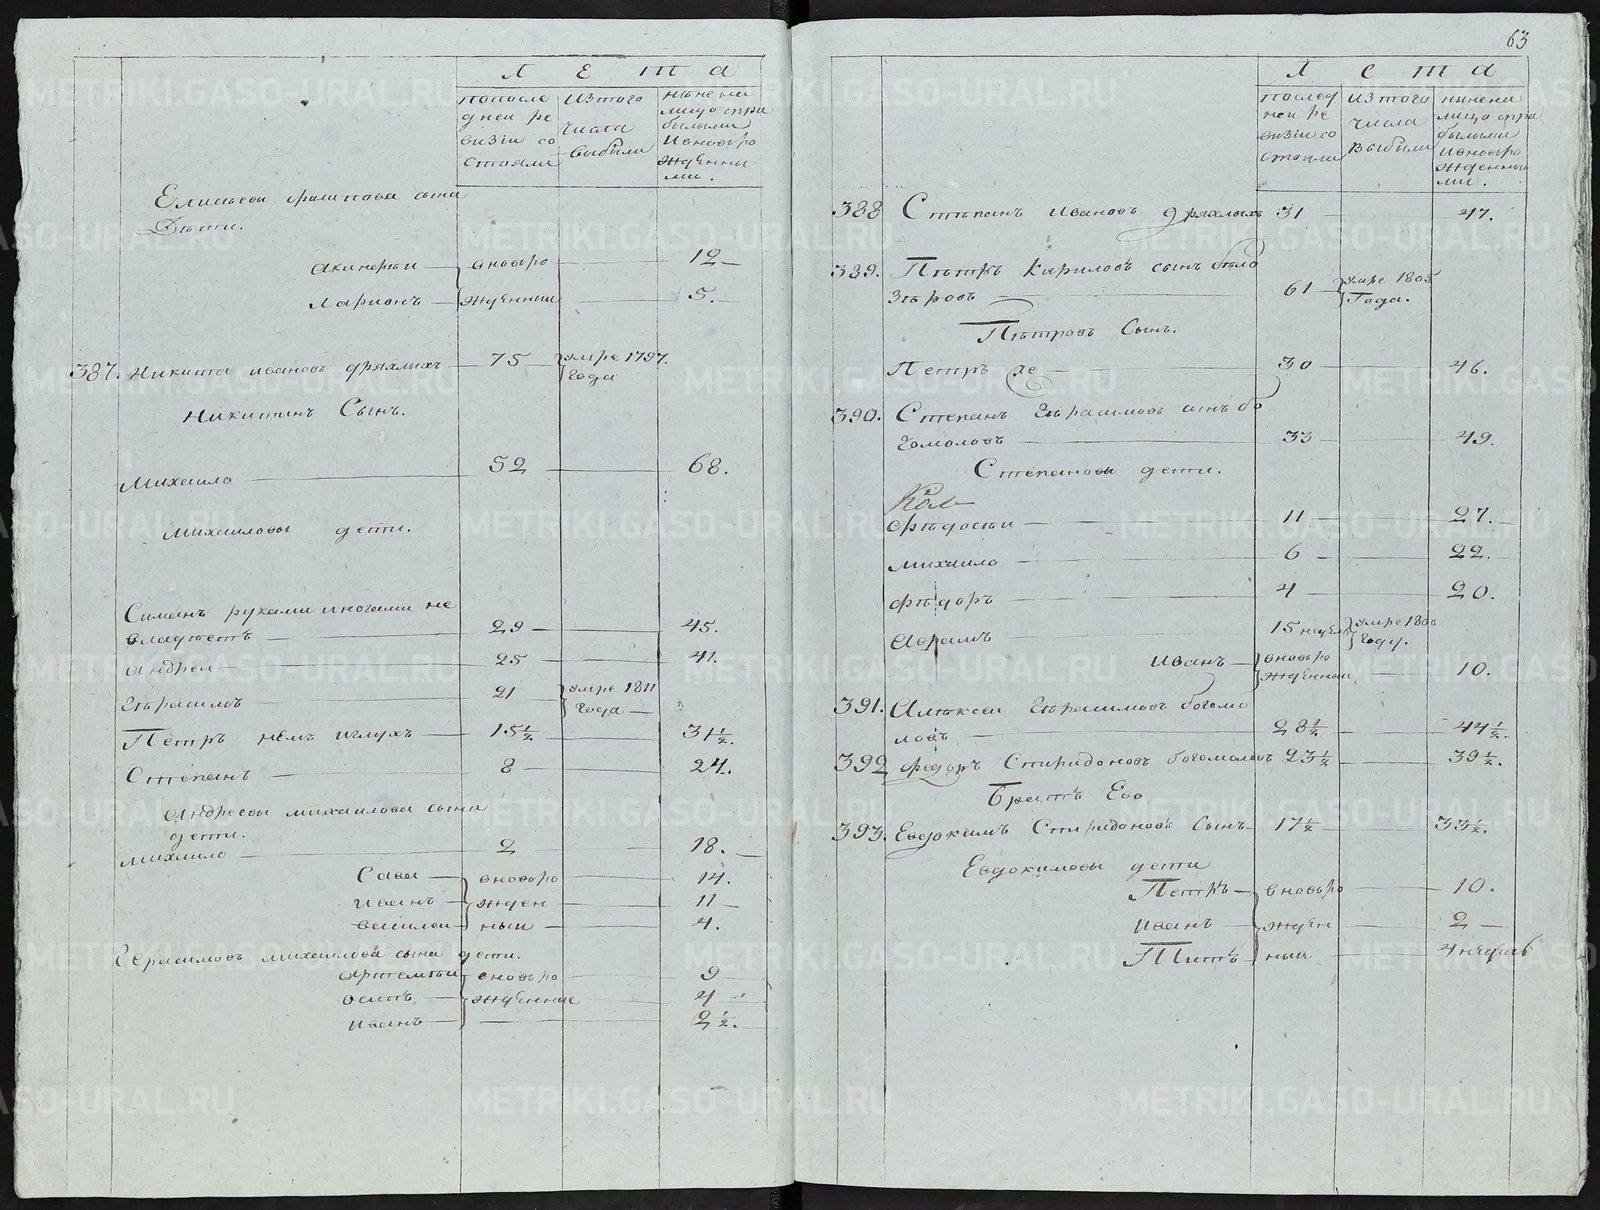 Л Е т а
попосле
дней ре
визiи со
стояли
изтого
числа
выбыли
ныне на
лицо спри
былыми
иновьро
жденны
ми.
Елисеевы филипова сына
Дети.
Акинфеи вновьро 12
Ларионъ жденныи 5.
387. Никита ивановъ дряхлыхъ 75 умре 1797.
года
Никитинъ Сынъ.
Михаило 52 68.
Михаиловы дети.
Симанъ руками иногами не
владѣетъ 29 45.
Андреи 25 41.
Герасимъ 21 умре 1811
года
Петръ немъ иглухъ 15½ 31½.
Степанъ 8 24.
Андреевы михаилова сына
дети.
Михаило 2 18.
Сава вновьро 14.
иванъ жден 11
василеи ныи 4.
Герасимовы михаилова сына дети.
Артемеи вновьро 9
осипъ жденные 4
иванъ 2½.
63
Л е т а
послед
ней ре
визiи со
стояли
изтого
числа
выбыли
ныне на
лицо спри
былыми
иновьро
жденны
ми.
388 Степанъ Ивановъ дряхлыхъ 31 47.
389. Петръ Кириловъ сынъ бѣло
зѣровъ 61 умре 1805
Года.
Петровъ Сынъ.
Петръ же 30 46.
390. Степанъ Герасимовъ сынъ бо
гомоловъ 33 49.
Степановы дети.
Фѣдосеи 11 27.
михаило 6 22.
Фѣдоръ 4 20.
Аврамъ 15 недель умре 1800
Году.
Иванъ вновьро
жденныи 10.
391. Алѣксеи Герасимовъ богомо
ловъ 28½ 44½.
392 Федоръ Спиридоновъ богомоловъ 23½ 39½.
Братъ Ево
393. Евдокимъ Спиридоновъ Сынъ 17½ 33½.
Евдокимовы дети
Петръ вновьро 10.
иванъ жден 2
Питъ ныи 4 недель
METRIKI.GASO-URAL.RU